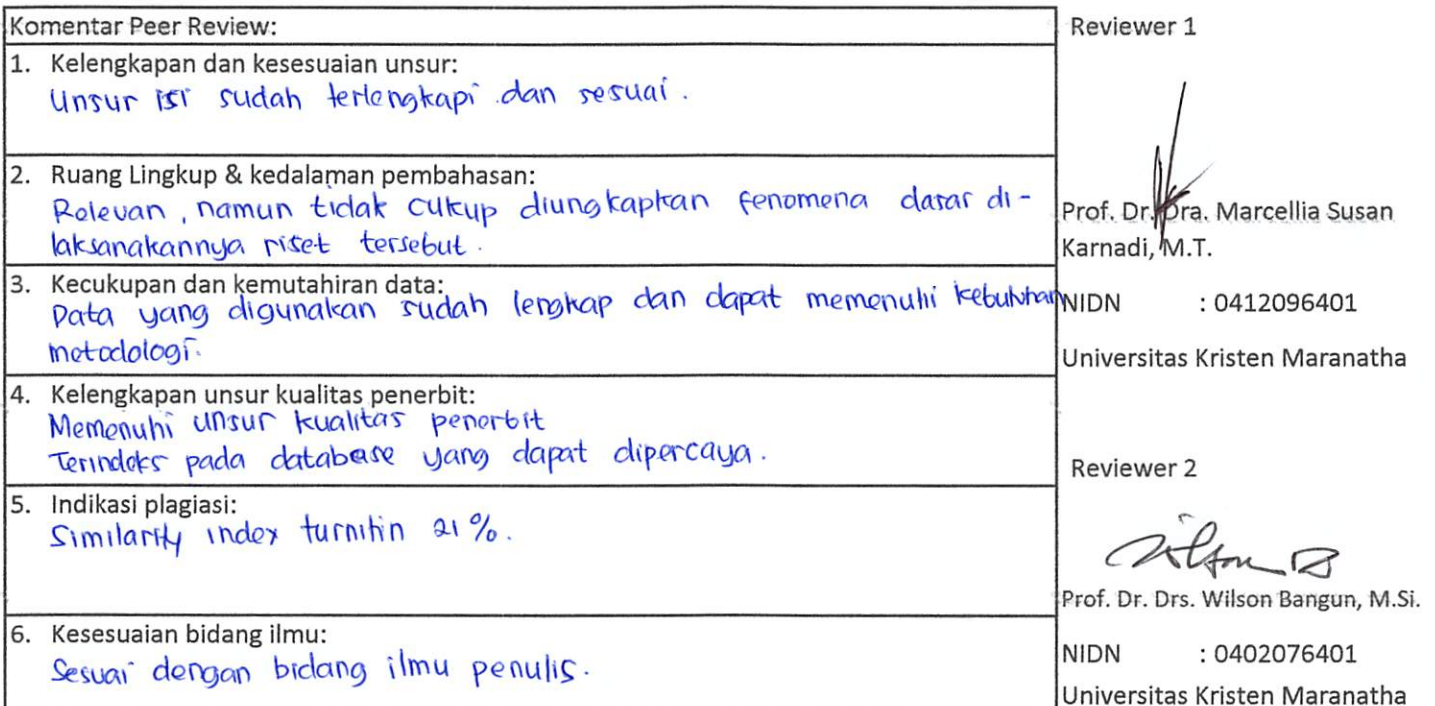 Komentar Peer Review:
1. Kelengkapan dan kesesuaian unsur:
Unsur isi sudah terlengkapi dan sesuai.
2. Ruang Lingkup & kedalaman pembahasan:
Relevan, namun tidak cukup diungkapkan fenomena dasar di-
laksanakannya riset tersebut.
3. Kecukupan dan kemutahiran data:
Data yang digunakan sudah lengkap dan dapat memenuhi kebutuhan
metodologi.
4. Kelengkapan unsur kualitas penerbit:
Memenuhi unsur kualitas penerbit
Terindeks pada database yang dapat dipercaya.
5. Indikasi plagiasi:
Similarity index turnitin 21%.
6. Kesesuaian bidang ilmu:
Sesuai dengan bidang ilmu penulis.
Reviewer 1
Prof. Dr. Dra. Marcellia Susan
Karnadi, M.T.
NIDN : 0412096401
Universitas Kristen Maranatha
Reviewer 2
Prof. Dr. Drs. Wilson Bangun, M.Si.
NIDN : 0402076401
Universitas Kristen Maranatha